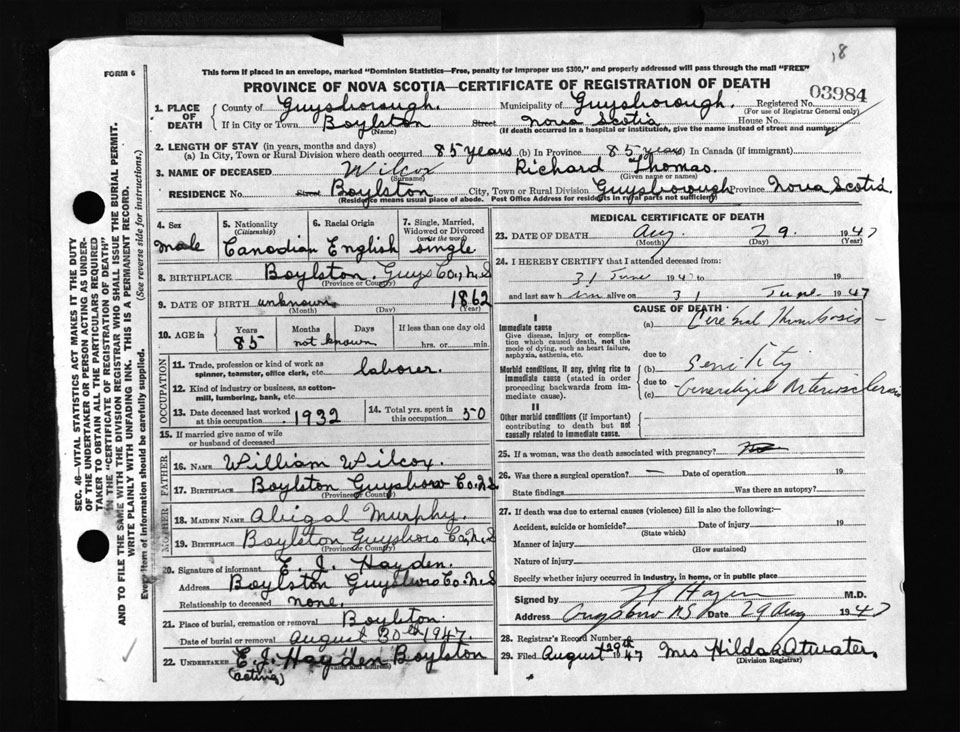 18
FORM 6
This form if placed in an envelope, marked "Dominion Statistics—Free, penalty for improper use $300," and properly addressed will pass through the mail "FREE"
PROVINCE OF NOVA SCOTIA—CERTIFICATE OF REGISTRATION OF DEATH
03984
1. PLACE OF DEATH County of Guysborough. Municipality of Guysborough. Registered No.
(For use of Registrar General only)
If in City or Town Boylston Street Nova Scotia House No.
(Name) (If death occurred in a hospital or institution, give the name instead of street and number)
2. LENGTH OF STAY (in years, months and days)
(a) In City, Town or Rural Division where death occurred 85 years (b) In Province 85 years In Canada (if immigrant)
3. NAME OF DECEASED Wilcox Richard Thomas.
(Surname) (Given name or names)
RESIDENCE No. Street Boylston City, Town or Rural Division Guysborough Province Nova Scotia
(Residence means usual place of abode. Post Office Address for residents in rural parts not sufficient)
4. Sex 5. Nationality (Citizenship) 6. Racial Origin 7. Single, Married, Widowed or Divorced (write the word)
male Canadian English single
8. BIRTHPLACE Boylston. Guys Co, N.S
(Province or County)
9. DATE OF BIRTH unknown 1862
(Month) (Day) (Year)
10. AGE in Years Months Days If less than one day old
85 not known hrs. or min.
OCCUPATION
11. Trade, profession or kind of work as laborer.
spinner, teamster, office clerk, etc.
12. Kind of industry or business, as cotton-
mill, lumbering, bank, etc.
13. Date deceased last worked at this occupation 1932 14. Total yrs. spent in this occupation 50
15. If married give name of wife
or husband of deceased
FATHER
16. NAME William Wilcox.
17. BIRTHPLACE Boylston Guysboro Co. N.S
(Province or County)
MOTHER
18. MAIDEN NAME Abigal Murphy.
19. BIRTHPLACE Boylston Guysboro Co, N.S
(Province or County)
20. Signature of informant E. J. Hayden.
Address Boylston Guysboro Co. N.S
Relationship to deceased none.
21. Place of burial, cremation or removal Boylston.
Date of burial or removal August 30th 1947.
22. UNDERTAKER E. J. Hayden Boylston
(acting)
MEDICAL CERTIFICATE OF DEATH
23. DATE OF DEATH Aug. 29. 1947
(Month) (Day) (Year)
24. I HEREBY CERTIFY that I attended deceased from:
31 June 1947 to 19
and last saw him alive on 31 June 1947
CAUSE OF DEATH
I
Immediate cause (a) Cerebral Thrombosis
Give disease, injury or complica-
tion which caused death, not the
mode of dying, such as heart failure,
asphyxia, asthenia, etc.
due to
Morbid conditions, if any, giving rise to (b) Senility
immediate cause (stated in order due to
proceeding backwards from im- (c) Generalized Arteriosclerosis
mediate cause).
II
Other morbid conditions (if important)
contributing to death but not
causally related to immediate cause.
25. If a woman, was the death associated with pregnancy? no
26. Was there a surgical operation? — Date of operation 19
State findings Was there an autopsy?
27. If death was due to external causes (violence) fill in also the following:—
Accident, suicide or homicide? Date of injury 19
(State which)
Manner of injury
(How sustained)
Nature of injury
Specify whether injury occurred in industry, in home, or in public place
Signed by M.D.
Address Guysboro N.S Date 29 Aug 1947
28. Registrar's Record Number
29. Filed August 29th 1947 Mrs Hilda Atwater.
(Division Registrar)
SEC. 46—VITAL STATISTICS ACT MAKES IT THE DUTY
OF THE UNDERTAKER OR PERSON ACTING AS UNDER-
TAKER TO OBTAIN ALL THE PARTICULARS REQUIRED
IN THE "CERTIFICATE OF REGISTRATION OF DEATH"
AND TO FILE THE SAME WITH THE DIVISION REGISTRAR WHO SHALL ISSUE THE BURIAL PERMIT.
WRITE PLAINLY WITH UNFADING INK. THIS IS A PERMANENT RECORD.
Every item of Information should be carefully supplied. (See reverse side for instructions.)